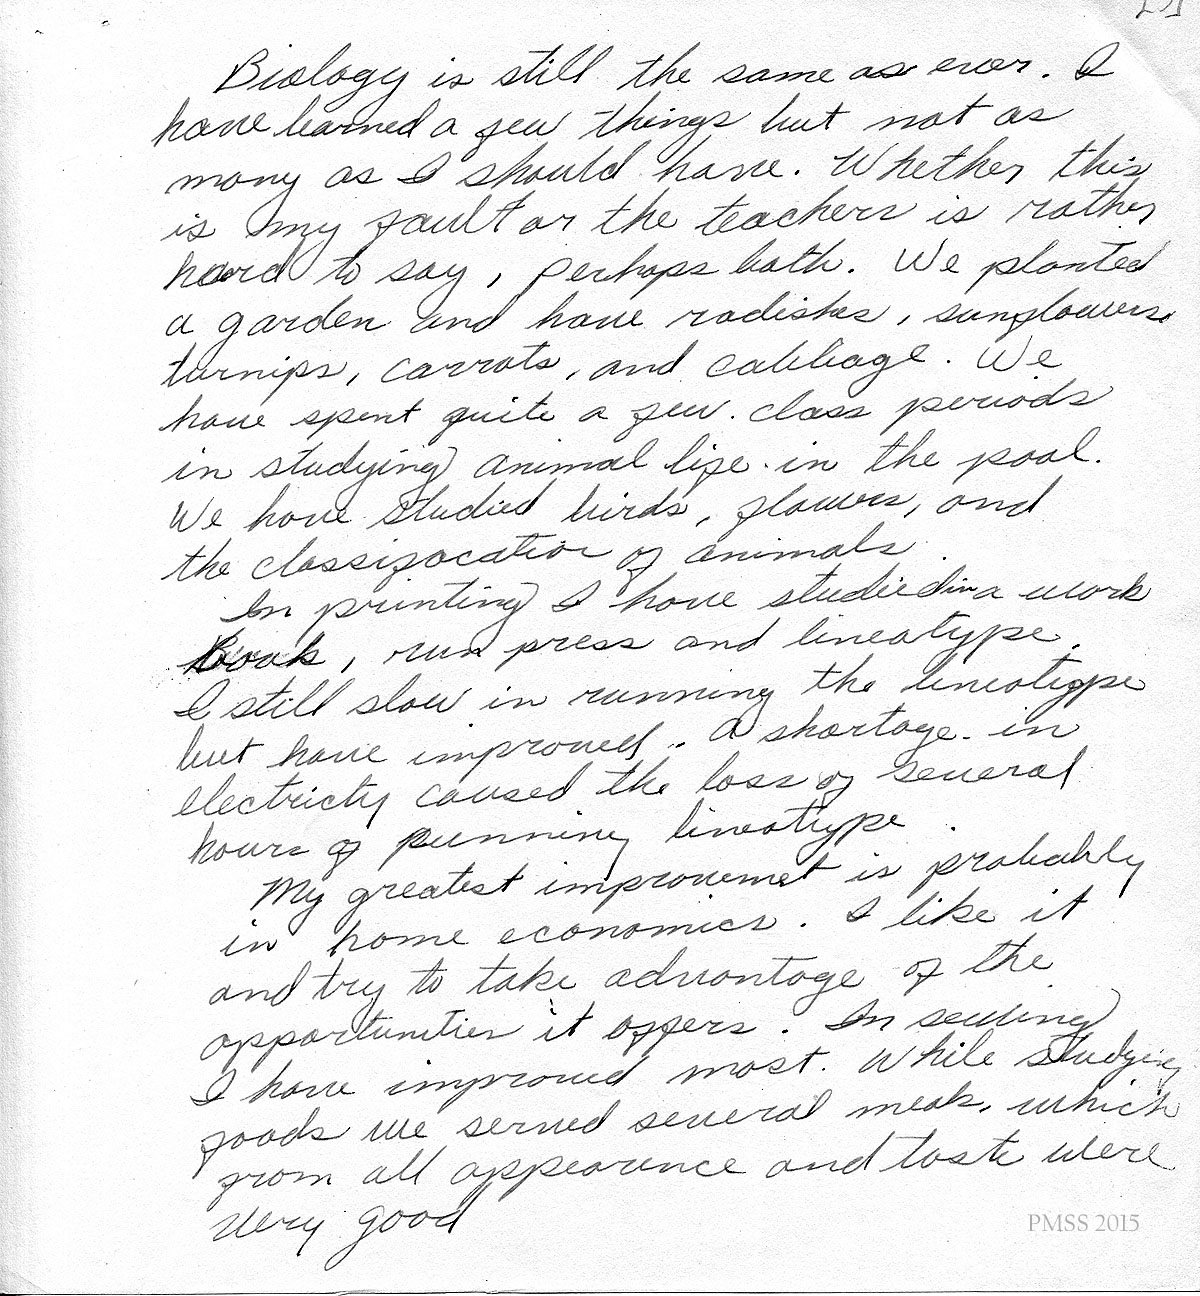 Biology is still the same as ever. I
have learned a few things but not as
many as I should have. Whether this
is my fault or the teachers is rather
hard to say, perhaps both. We planted
a garden and have radishes, sunflowers,
turnips, carrots, and cabbage. We
have spent quite a few class periods
in studying animal life in the pool.
We have studied birds, flowers, and
the classifocation of animals.
In printing I have studied in a work
book, run press and lineotype.
I still slow in running the lineotype
but have improved. A shortage in
electricty caused the loss of several
hours of running lineotype.
My greatest improvemet is probably
in home economics. I like it
and try to take advantage of the
opportunities it offers. In sewing
I have improved most. While studying
foods we served several meals, which
from all appearence and taste were
very good
PMSS 2015